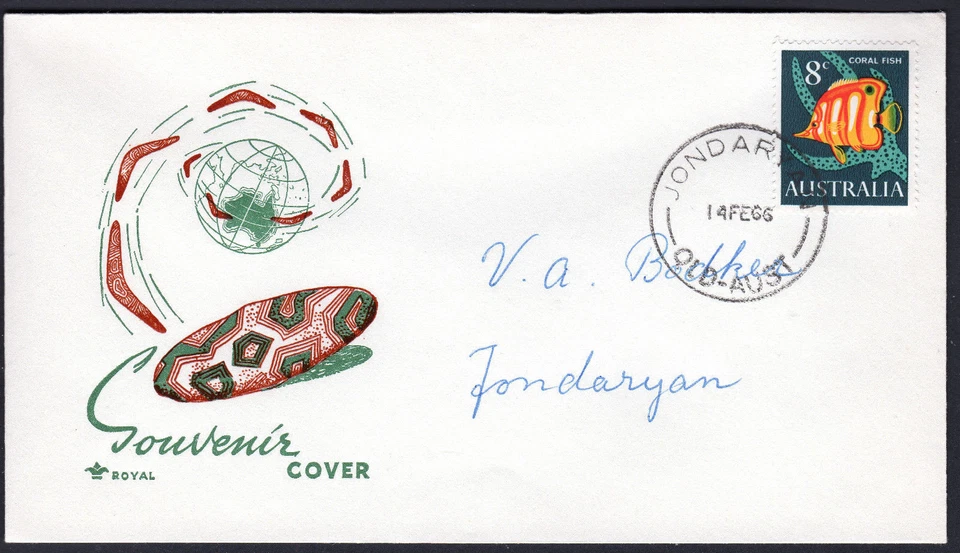 8c CORAL FISH
AUSTRALIA
JONDARYAN
14FE66
QLD-AUST
V. A. Bodker
Jondaryan
Souvenir
COVER
ROYAL